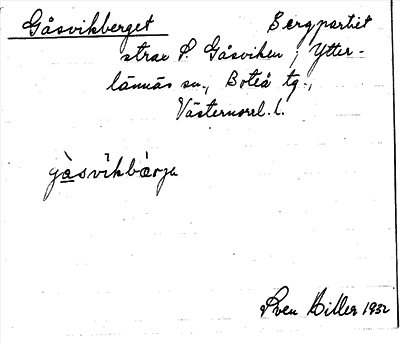 Gåsvikberget Bergpartiet
strax S. Gåsviken, Ytter-
lännäs sn., Boteå tg.,
Västernorrl. l.
gåsvikbærja
Sven Hiller 1932